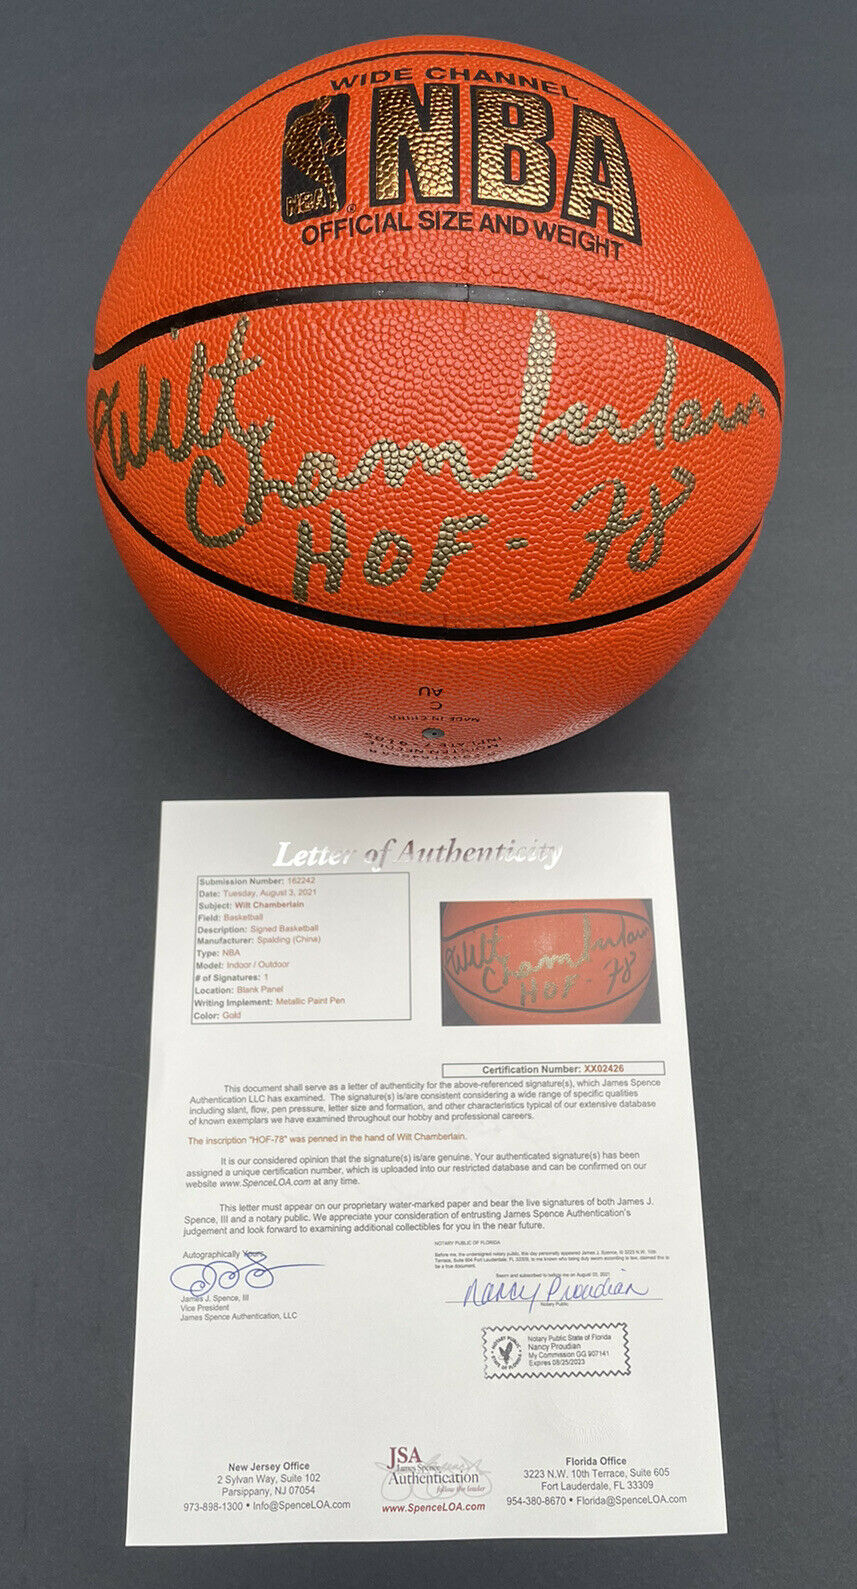 WIDE CHANNEL
NBA
NBA
®
OFFICIAL SIZE AND WEIGHT
Wilt Chamberlain
HOF - 78
AU
C
MADE IN CHINA
Letter of Authenticity
Submission Number: 162242
Date: Tuesday, August 3, 2021
Subject: Wilt Chamberlain
Field: Basketball
Description: Signed Basketball
Manufacturer: Spalding (China)
Type: NBA
Model: Indoor / Outdoor
# of Signatures: 1
Location: Blank Panel
Writing Implement: Metallic Paint Pen
Color: Gold
Wilt Chamberlain
HOF - 78
Certification Number: XX02426
This document shall serve as a letter of authenticity for the above-referenced signature(s), which James Spence
Authentication LLC has examined. The signature(s) is/are consistent considering a wide range of specific qualities
including slant, flow, pen pressure, letter size and formation, and other characteristics typical of our extensive database
of known exemplars we have examined throughout our hobby and professional careers.
The inscription "HOF-78" was penned in the hand of Wilt Chamberlain.
It is our considered opinion that the signature(s) is/are genuine. Your authenticated signature(s) has been
assigned a unique certification number, which is uploaded into our restricted database and can be confirmed on our
website www.SpenceLOA.com at any time.
This letter must appear on our proprietary water-marked paper and bear the live signatures of both James J.
Spence, III and a notary public. We appreciate your consideration of entrusting James Spence Authentication's
judgement and look forward to examining additional collectibles for you in the near future.
Autographically Yours,
James J. Spence, III
Vice President
James Spence Authentication, LLC
NOTARY PUBLIC OF FLORIDA
Before me, the undersigned notary public, this day personally appeared James J. Spence, III @ 3223 N.W. 10th
Terrace, Suite 604 Fort Lauderdale, FL 33309, to me known who being duly sworn according to law, claimed this to
be a true document.
Sworn and subscribed to before me on August 03, 2021
Nancy Proudian
Notary Public
NOTARY PUBLIC
STATE OF FLORIDA
Notary Public State of Florida
Nancy Proudian
My Commission GG 907141
Expires 08/25/2023
New Jersey Office
2 Sylvan Way, Suite 102
Parsippany, NJ 07054
973-898-1300 • Info@SpenceLOA.com
JSA
James Spence
Authentication
follow the leader
www.SpenceLOA.com
Florida Office
3223 N.W. 10th Terrace, Suite 605
Fort Lauderdale, FL 33309
954-380-8670 • Florida@SpenceLOA.com